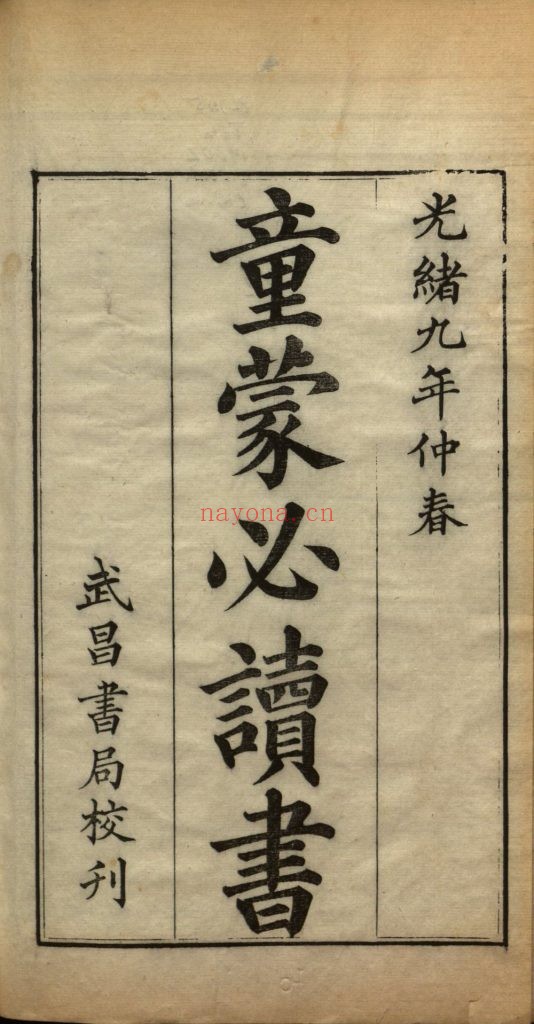 光緒九年仲春
童蒙必讀書
武昌書局校刊
nayona.cn